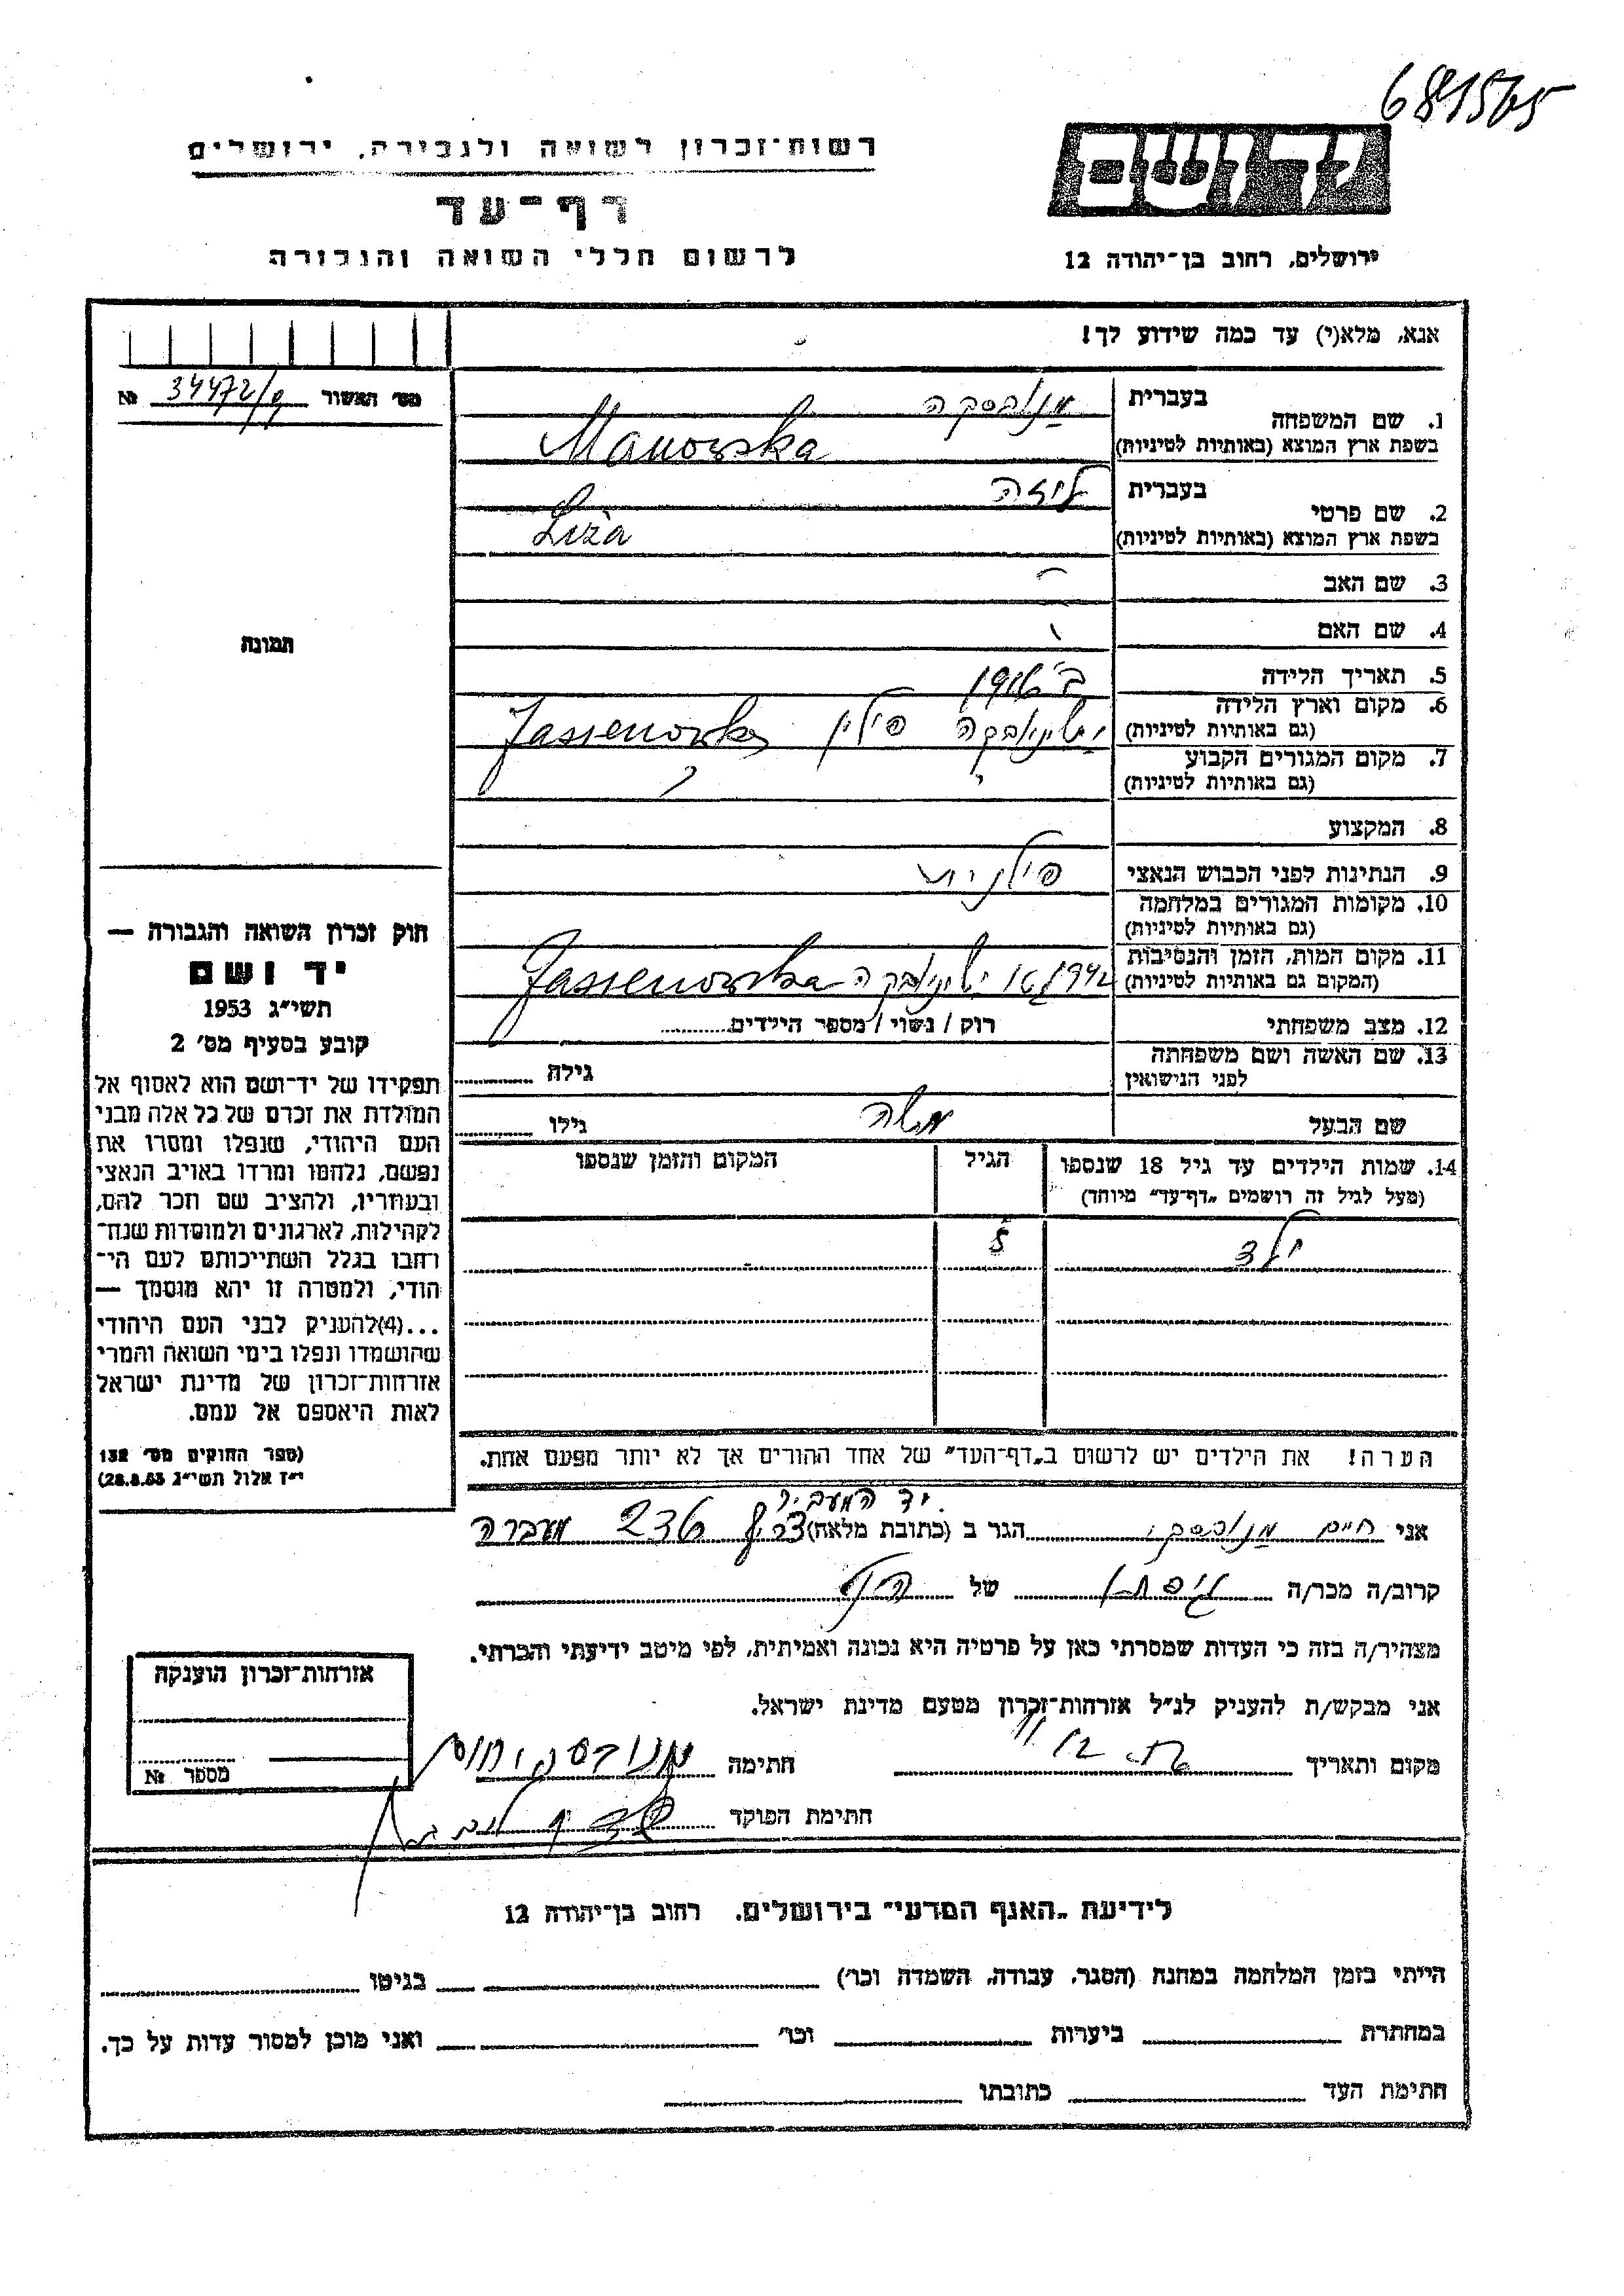 681565
רשות-זכרון לשואה ולגבורה, ירושלים
דף-עד
לרשום חללי השואה והגבורה
יד ושם
ירושלים, רחוב בן-יהודה 12
אנא, מלא(י) עד כמה שידוע לך!
מס׳ האשור 34472/ № 
1. שם המשפחה בעברית מנובסקה
בשפת ארץ המוצא (באותיות לטיניות) Manowska
2. שם פרטי בעברית ליזה
בשפת ארץ המוצא (באותיות לטיניות) Liza
3. שם האב
4. שם האם
תמונה
5. תאריך הלידה
6. מקום וארץ הלידה פולין Jassenowska
(גם באותיות לטיניות)
7. מקום המגורים הקבוע
(גם באותיות לטיניות)
8. המקצוע
9. הנתינות לפני הכבוש הנאצי פולנית
10. מקומות המגורים במלחמה
(גם באותיות לטיניות)
11. מקום המות, הזמן והנסיבות 1942 Jassenowska
(המקום גם באותיות לטיניות)
12. מצב משפחתי רוק / נשוי / מספר הילדים
13. שם האשה ושם משפחתה
לפני הנישואין גילה
שם הבעל משה גילו
14. שמות הילדים עד גיל 18 שנספו הגיל המקום והזמן שנספו
(מעל לגיל זה רושמים „דף-עד” מיוחד)
ילד 5
הערה! את הילדים יש לרשום ב„דף-העד” של אחד ההורים אך לא יותר מפעם אחת.
חוק זכרון השואה והגבורה —
יד ושם
תשי״ג 1953
קובע בסעיף מס׳ 2
תפקידו של יד-ושם הוא לאסוף אל
המולדת את זכרם של כל אלה מבני
העם היהודי, שנפלו ומסרו את
נפשם, נלחמו ומרדו באויב הנאצי
ובעוזריו, ולהציב שם וזכר להם,
לקהילות, לארגונים ולמוסדות שנח־
רבו בגלל השתייכותם לעם הי־
הודי, ולמטרה זו יהא מוסמך —
...(4)להעניק לבני העם היהודי
שהושמדו ונפלו בימי השואה והמרי
אזרחות-זכרון של מדינת ישראל
לאות היאספם אל עמם.
(ספר החוקים מס׳ 132
י״ז אלול תשי״ג 28.8.53)
יד המעביר
אני חיים מנובסקי הגר ב (כתובת מלאה) צריף 237 מעברה
קרוב/ה מכר/ה גיסתי של
מצהיר/ה בזה כי העדות שמסרתי כאן על פרטיה היא נכונה ואמיתית, לפי מיטב ידיעתי והכרתי.
אני מבקש/ת להעניק לנ״ל אזרחות-זכרון מטעם מדינת ישראל.
מקום ותאריך חתימה מנובסקי חיים
חתימת הפוקד
אזרחות-זכרון הוענקה
מספר №
לידיעת „האגף המדעי” בירושלים, רחוב בן-יהודה 12
הייתי בזמן המלחמה במחנה (הסגר, עבודה, השמדה וכו׳) בגיטו
במחתרת ביערות וכו׳ ואני מוכן למסור עדות על כך.
חתימת העד כתובתו